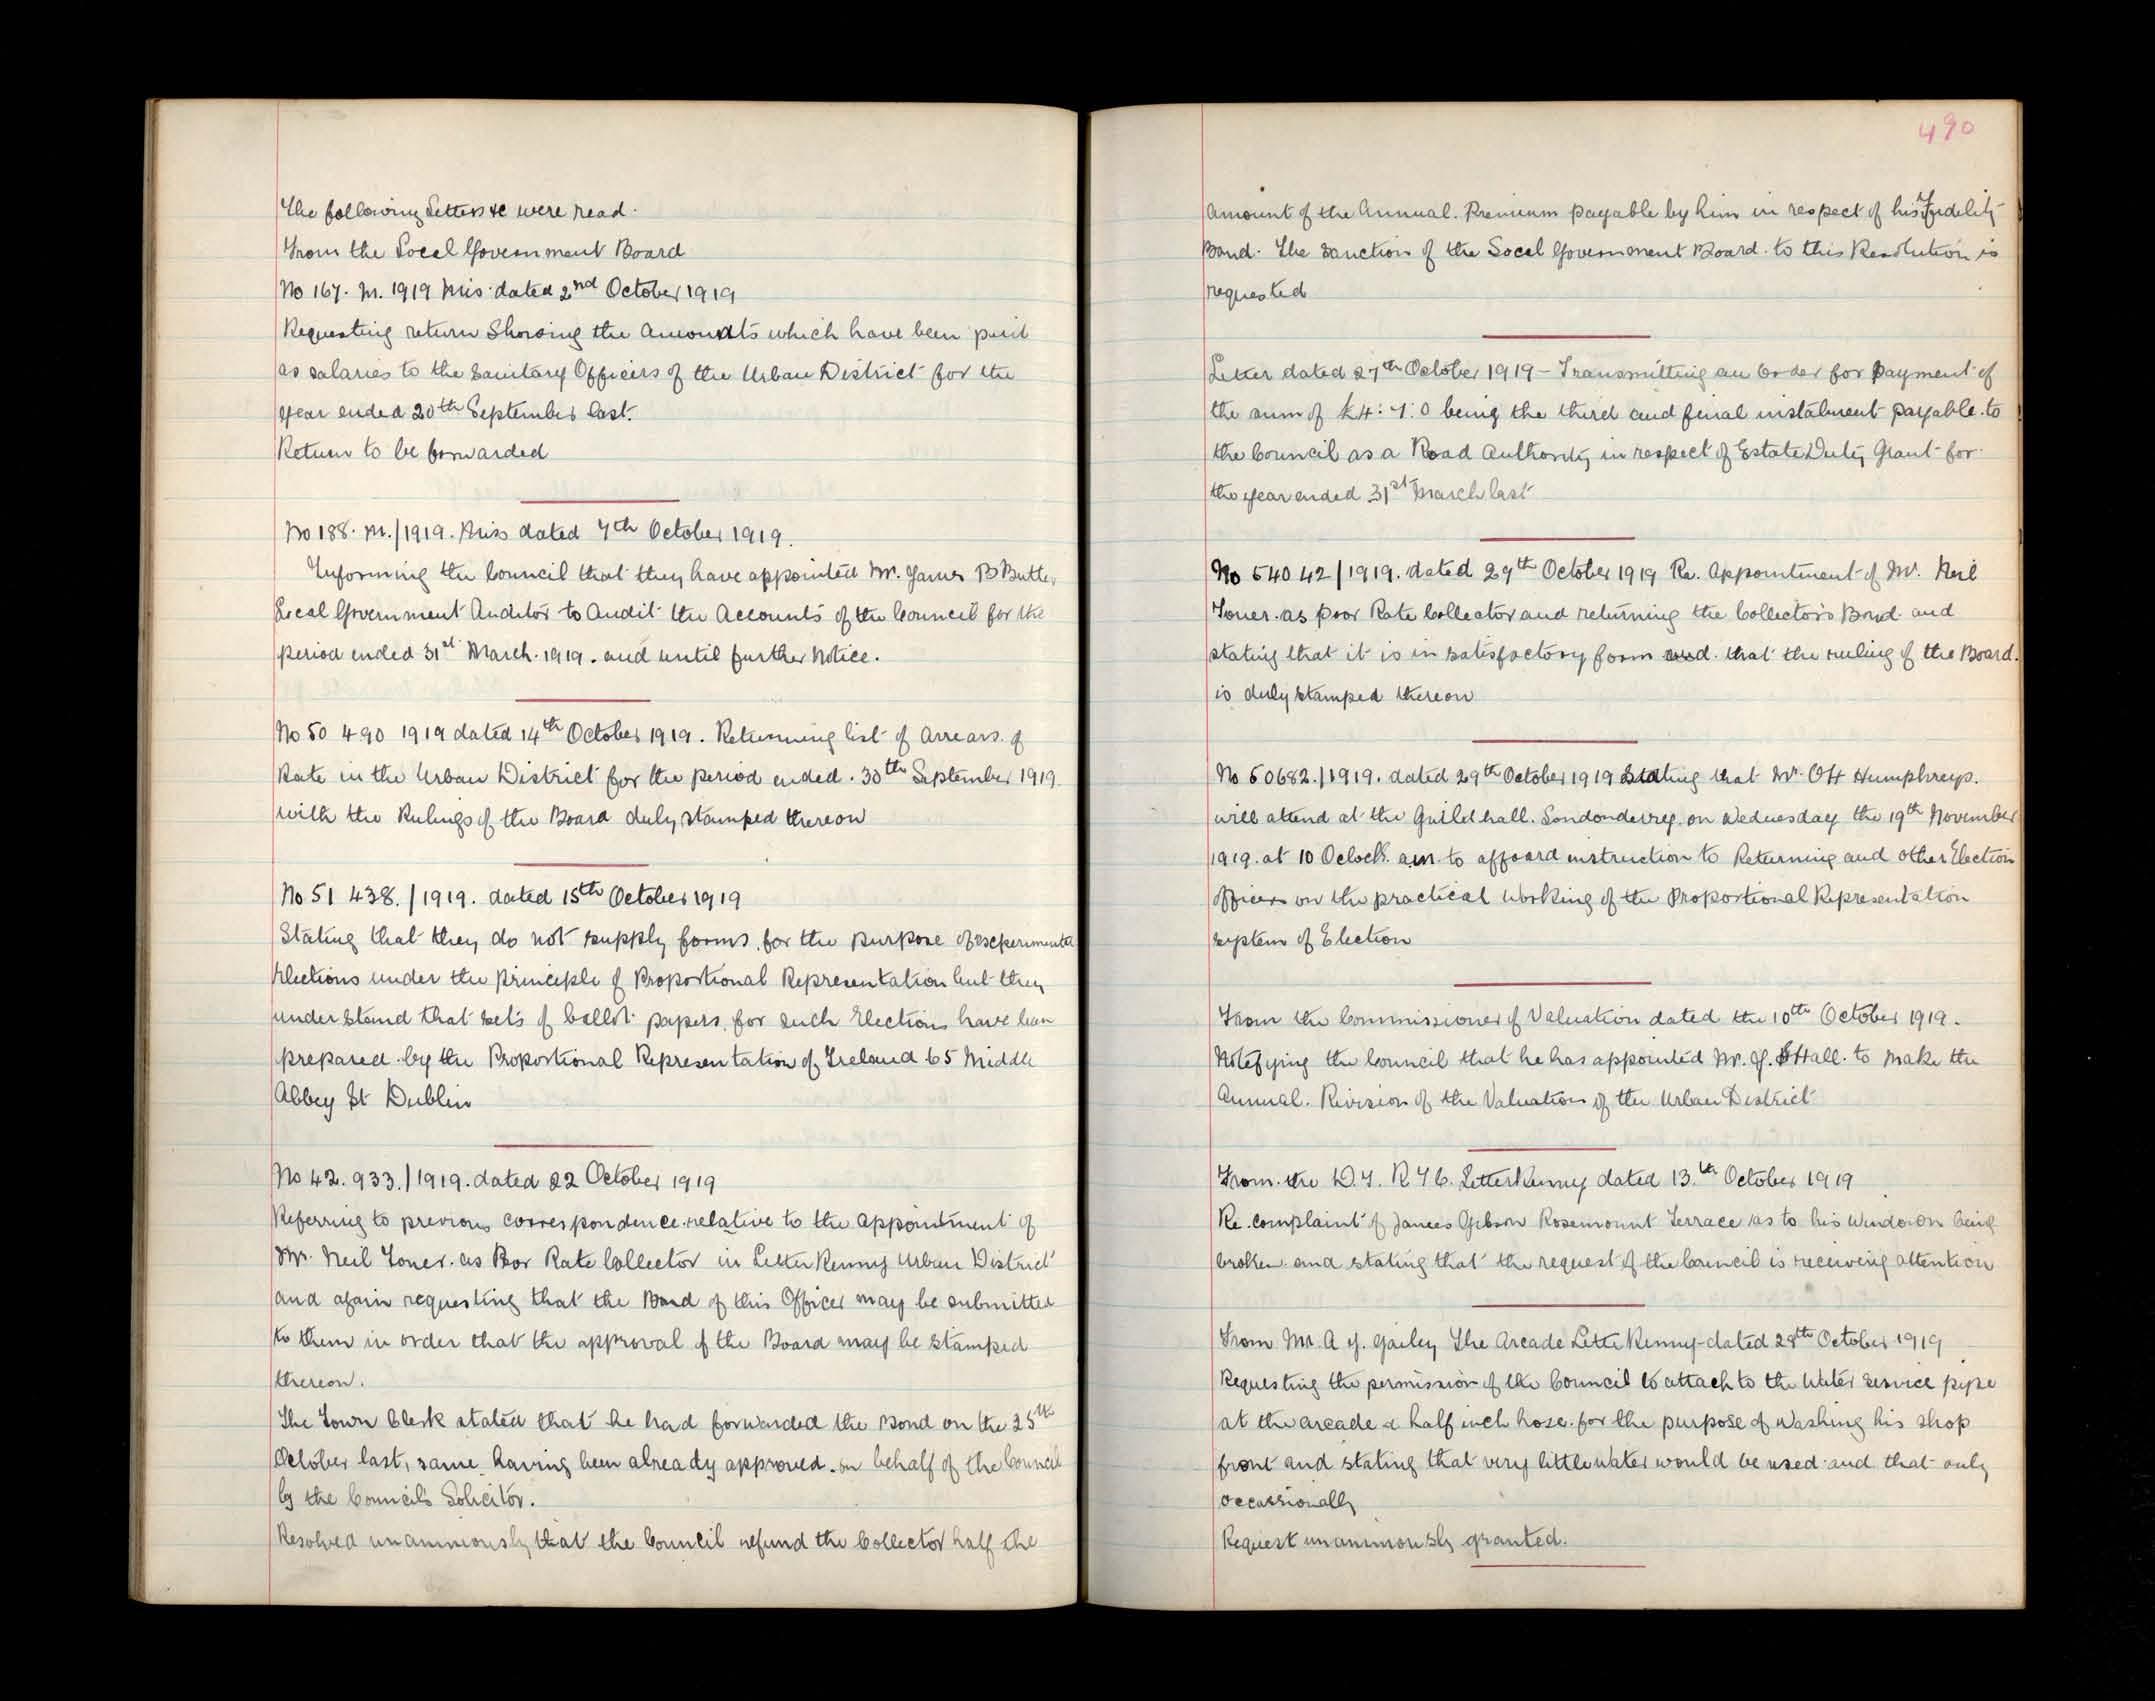 The following Letters &c were read.
From the Local Government Board
No 167. M. 1919 Mis. dated 2nd October 1919
Requesting return Showing the amounts which have been paid
as salaries to the Sanitary Officers of the Urban District for the
year ended 20th September last.
Return to be forwarded
No 188. M./1919. Miss dated 7th October 1919.
Informing the Council that they have appointed Mr. James B Butler
Local Government Auditor to Audit the Accounts of the Council for the
period ended 31st March. 1919. and until further Notice.
No 50 490 1919 dated 14th October 1919. Returning list of Arrears of
Rate in the Urban District for the period ended. 30th September 1919.
with the Rulings of the Board duly stamped thereon
No 51 438./1919. dated 15th October 1919
Stating that they do not supply forms for the purpose of experimental
Elections under the principle of Proportional Representation but they
understand that sets of ballot papers for such Elections have been
prepared by the Proportional Representation of Ireland 65 Middle
Abbey St Dublin
No 42. 933./1919. dated 22 October 1919
Referring to previous correspondence relative to the appointment of
Mr. Neil Toner. as Poor Rate Collector in Letterkenny Urban District
and again requesting that the Bond of this Officer may be submitted
to them in order that the approval of the Board may be stamped
thereon.
The Town Clerk stated that he had forwarded the Bond on the 25th
October last, same having been already approved. on behalf of the Council
by the Council's Solicitor.
Resolved unanimously that the Council refund the Collector half the
490
amount of the Annual. Premium payable by him in respect of his Fidelity
Bond. The sanction of the Local Government Board. to this Resolution is
requested
Letter dated 27th October 1919 - Transmitting an Order for Payment of
the sum of £4: 7: 0 being the third and final instalment payable to
the Council as a Road Authority in respect of Estate Duty Grant for
the year ended 31st March last
No 54042/1919. dated 29th October 1919 Re. Appointment of Mr. Neil
Toner. as Poor Rate Collector and returning the Collector's Bond and
stating that it is in satisfactory form and. that the ruling of the Board.
is duly stamped thereon
No 50682./1919. dated 29th October 1919 Stating that Mr. O H Humphreys.
will attend at the Guildhall. Londonderry. on Wednesday the 19th November
1919. at 10 Oclock. a.m. to affoard instruction to Returning and other Election
Officers on the practical working of the Proportional Representation
system of Election
From the Commissioner of Valuation dated the 10th October 1919.
Notefying the Council that he has appointed Mr. J. S Hall. to make the
Annual. Rivision of the Valuation of the Urban District
From. the D.I. R I C. Letterkenny dated 13.th October 1919
Re. complaint of James Gibson Rosemount Terrace as to his window being
broken and stating that the request of the Council is receiving attention
From Mr. A J. Gailey The Arcade Letterkenny dated 28th October 1919
Requesting the permission of the Council to attach to the Water service pipe
at the arcade a half inch hose. for the purpose of washing his shop
front and stating that very little water would be used and that only
occassionally
Request unanimously granted.